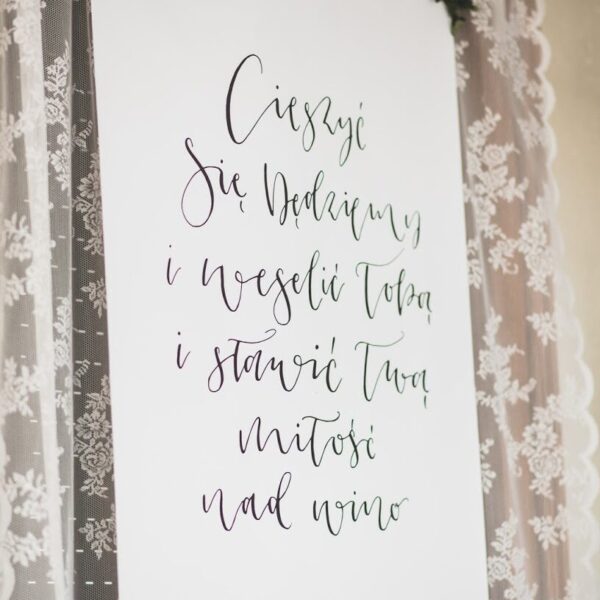 Cieszyć
Się będziemy
i weselić Tobą
i sławić Twą
miłość
nad wino